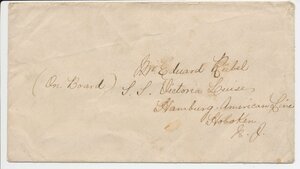 Mr Eduard Rübel
(On Board) S. S. Victoria Luise
Hamburg-American Line
Hoboken
N. J.